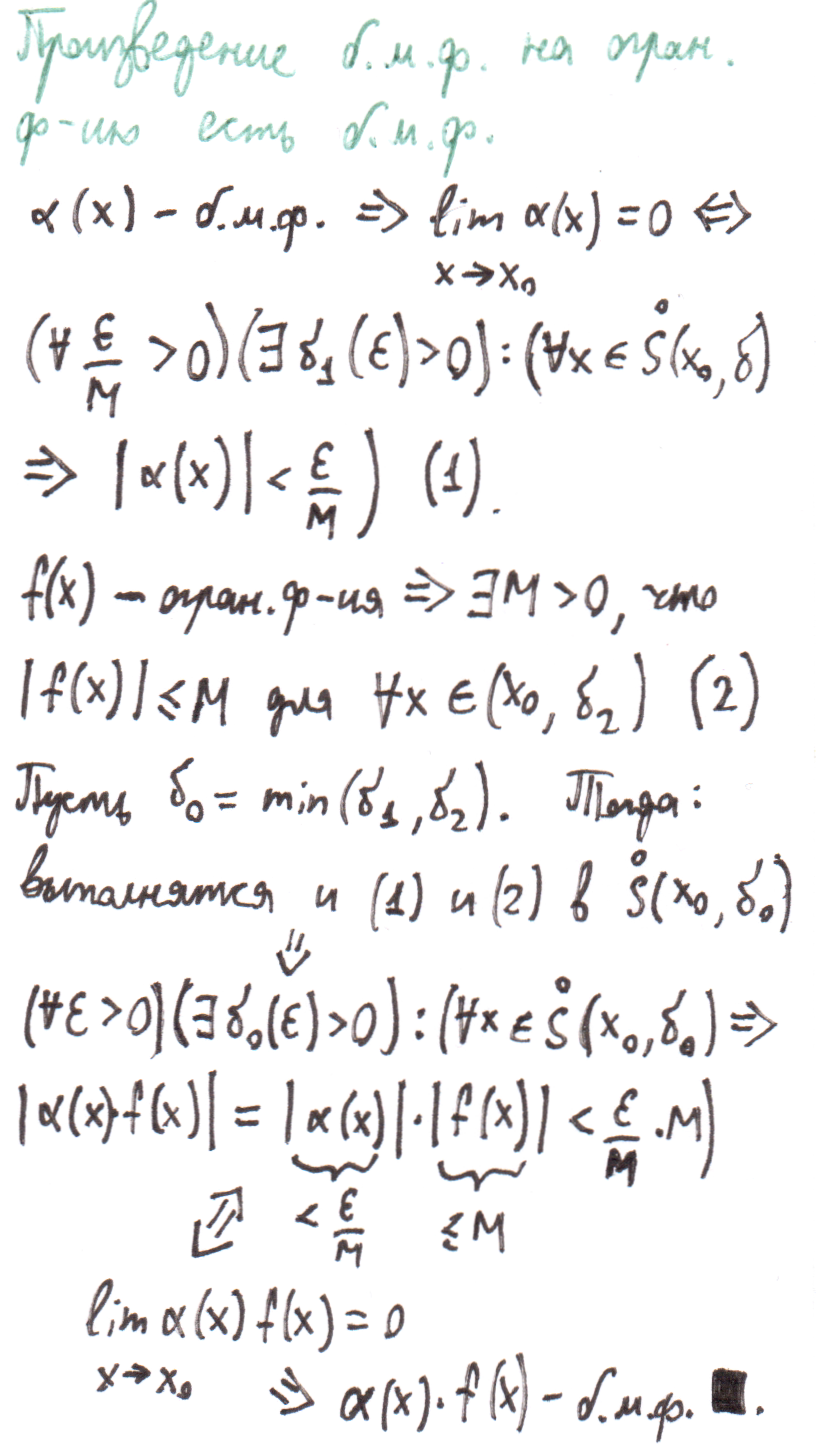 Произведение б.м.ф. на огран.
ф-ию есть б.м.ф.
α(x) – б.м.ф. ⇒ lim α(x) = 0 ⇔
x→x₀
(∀ ε/M > 0)(∃ δ₁(ε) > 0) : (∀x ∈ S̊(x₀, δ)
⇒ |α(x)| < ε/M ) (1).
f(x) – огран. ф-ия ⇒ ∃M > 0, что
|f(x)| ≤ M для ∀x ∈ (x₀, δ₂) (2)
Пусть δ₀ = min(δ₁, δ₂). Тогда:
выполнятся и (1) и (2) в S̊(x₀, δ₀)
⇓
(∀ε > 0)(∃ δ₀(ε) > 0) : (∀x ∈ S̊(x₀, δ₀) ⇒
|α(x)·f(x)| = |α(x)|·|f(x)| < ε/M · M)
⇕ < ε/M ≤ M
lim α(x) f(x) = 0
x→x₀
⇒ α(x)·f(x) – б.м.ф. ■.